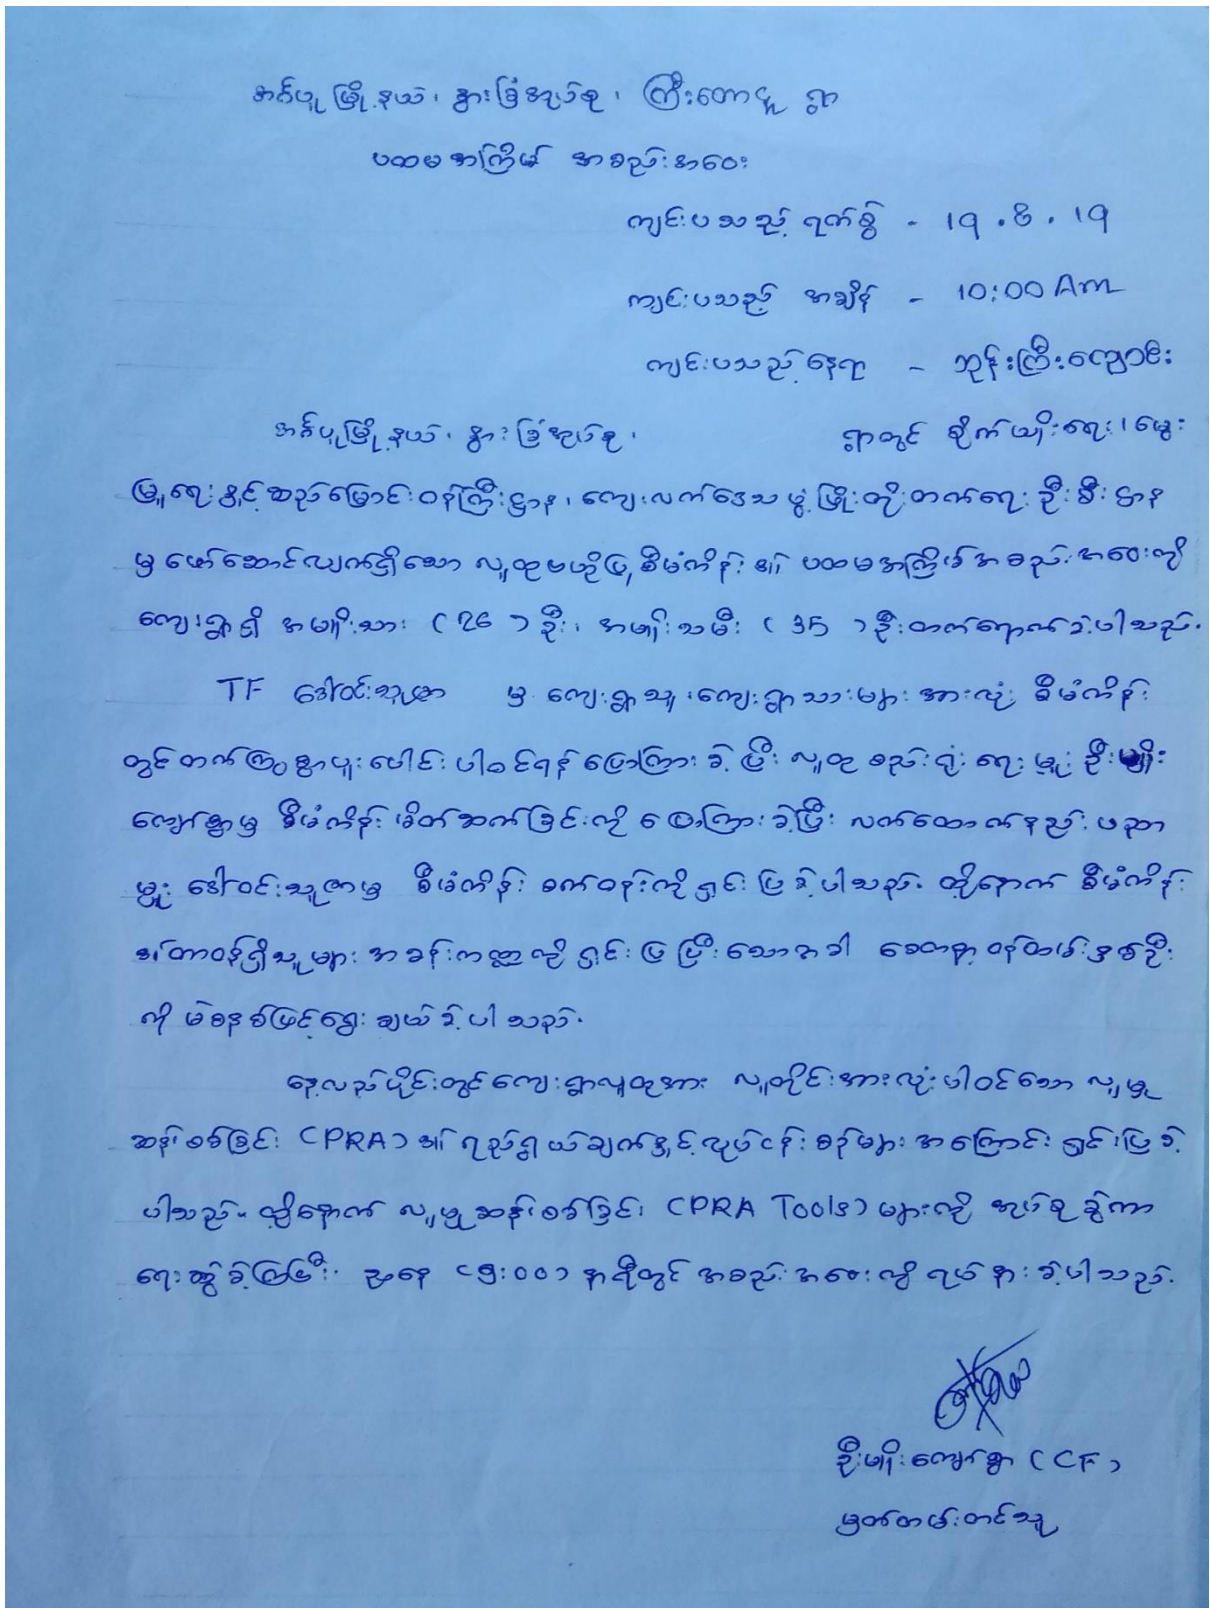 အင်္ဂပူမြို့နယ်၊ နွားခြံအုပ်စု၊ ကြီးတောငူ ရွာ
ပထမအကြိမ် အစည်းအဝေး
ကျင်းပသည့် ရက်စွဲ - 19.8.19
ကျင်းပသည့် အချိန် - 10:00 Am
ကျင်းပသည့်နေရာ - ဘုန်းကြီးကျောင်း
အင်္ဂပူမြို့နယ်၊ နွားခြံအုပ်စု၊ ရွာတွင် စိုက်ပျိုးရေး၊ မွေး
မြူရေးနှင့်ဆည်မြောင်းဝန်ကြီးဌာန၊ ကျေးလက်ဒေသဖွံ့ဖြိုးတိုးတက်ရေးဦးစီးဌာန
မှ ဖော်ဆောင်လျက်ရှိသော လူထုဗဟိုပြုစီမံကိန်း၏ ပထမအကြိမ်အစည်းအဝေးကို
ကျေးရွာရှိ အမျိုးသား (26) ဦး၊ အမျိုးသမီး (35) ဦးတက်ရောက်ခဲ့ပါသည်။
TF ဒေါ်ဝင်းသူဇာ မှ ကျေးရွာသူ၊ ကျေးရွာသားများအားလုံး စီမံကိန်း
တွင်တက်ကြွစွာပူးပေါင်းပါဝင်ရန် ပြောကြားခဲ့ပြီး လူထုစည်းရုံးရေးမှူး ဦးမျိုး
ကျော်စွာမှ စီမံကိန်းမိတ်ဆက်ခြင်းကို ပြောကြားခဲ့ပြီး လက်ထောက်နည်းပညာ
မှူး ဒေါ်ဝင်းသူဇာမှ စီမံကိန်း စက်ဝန်းကိုရှင်းပြခဲ့ပါသည်။ ထို့နောက် စီမံကိန်း
၏တာဝန်ရှိသူများ အခန်းကဏ္ဍကိုရှင်းပြပြီးသောအခါ စေတနာ့ဝန်ထမ်းနှစ်ဦး
ကို မဲစနစ်ဖြင့်ရွေးချယ်ခဲ့ပါသည်။
နေ့လည်ပိုင်းတွင်ကျေးရွာလူထုအား လူတိုင်းအားလုံးပါဝင်သော လူမှု
ဆန်းစစ်ခြင်း (PRA) ၏ ရည်ရွယ်ချက်နှင့်လုပ်ငန်းစဉ်များအကြောင်းရှင်းပြခဲ့
ပါသည်။ ထို့နောက် လူမှုဆန်းစစ်ခြင်း (PRA Tools) များကို အုပ်စုခွဲကာ
ရေးဆွဲခဲ့ကြပြီး ညနေ (5:00) နာရီတွင် အစည်းအဝေးကို ရပ်နားခဲ့ပါသည်။
ဦးမျိုးကျော်စွာ (CF)
မှတ်တမ်းတင်သူ